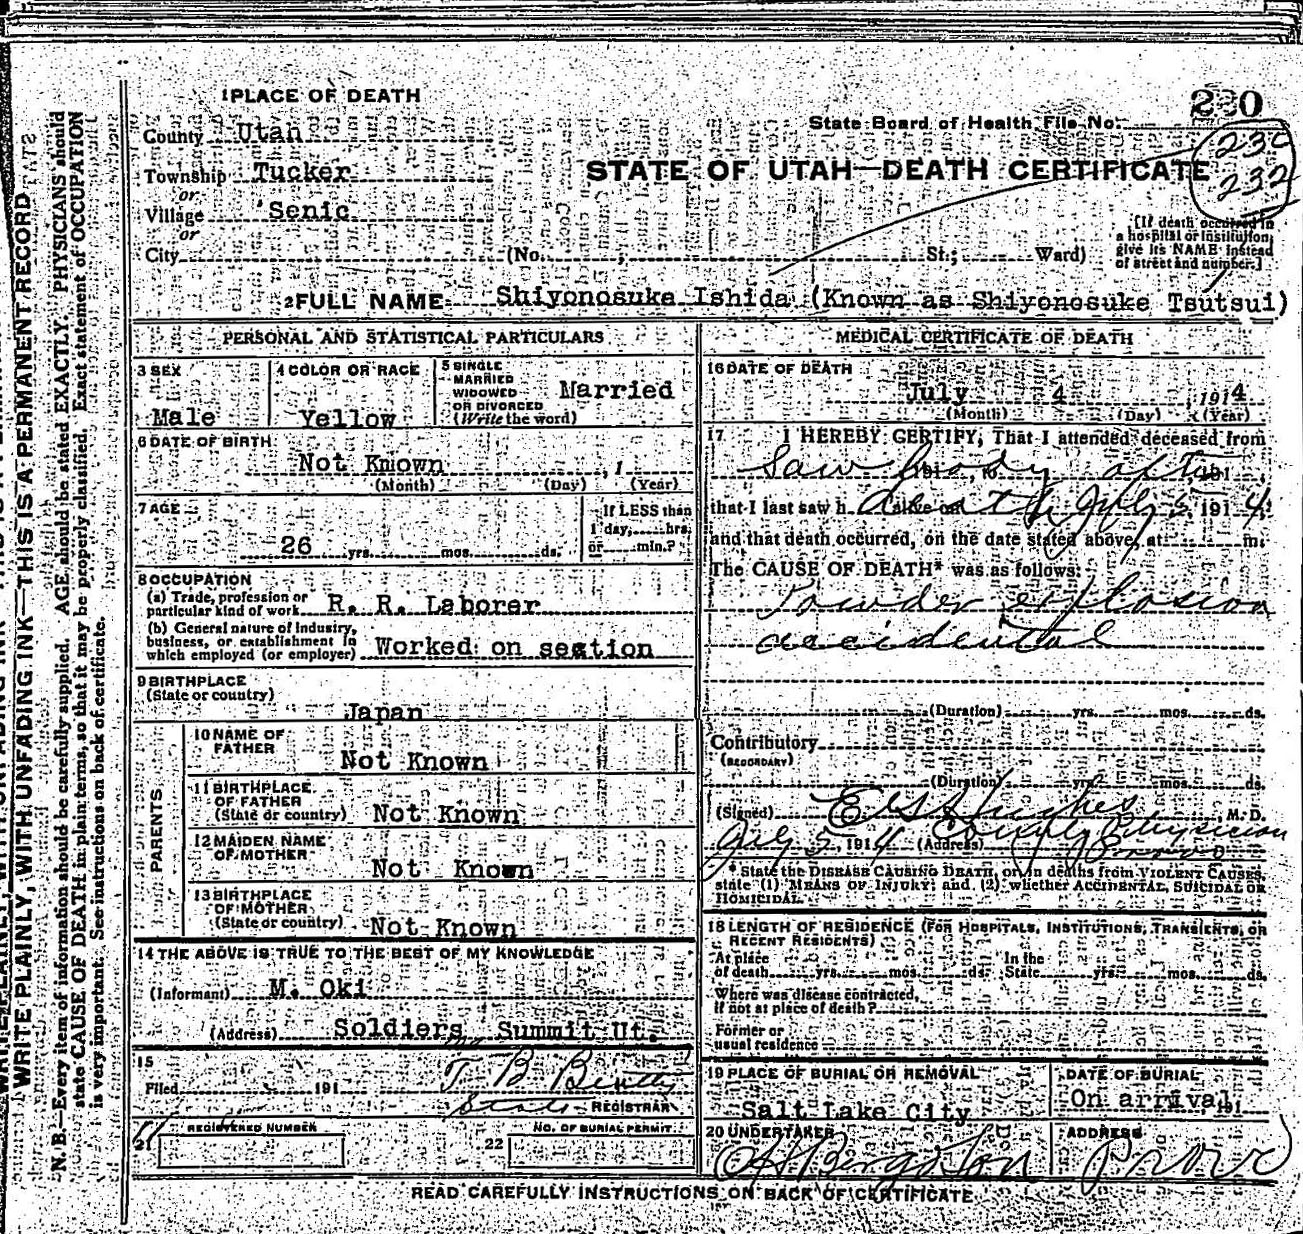 1 PLACE OF DEATH
County Utah
Township Tucker
or
Village Senic
or
City (No. St.; Ward)
230
State Board of Health File No.
230
232
STATE OF UTAH—DEATH CERTIFICATE
[If death occurred in
a hospital or institution,
give its NAME instead
of street and number.]
2 FULL NAME Shiyonosuke Ishida (Known as Shiyonosuke Tsutsui)
PERSONAL AND STATISTICAL PARTICULARS
3 SEX
Male
4 COLOR OR RACE
Yellow
5 SINGLE
MARRIED
WIDOWED
OR DIVORCED
(Write the word)
Married
6 DATE OF BIRTH
Not Known , 1
(Month) (Day) (Year)
7 AGE
26 yrs. mos. ds.
If LESS than
1 day, hrs.
or min.?
8 OCCUPATION
(a) Trade, profession or
particular kind of work R. R. Laborer
(b) General nature of industry,
business, or establishment in
which employed (or employer) Worked on section
9 BIRTHPLACE
(State or country)
Japan
PARENTS
10 NAME OF
FATHER
Not Known
11 BIRTHPLACE
OF FATHER
(State or country) Not Known
12 MAIDEN NAME
OF MOTHER
Not Known
13 BIRTHPLACE
OF MOTHER
(State or country) Not Known
14 THE ABOVE IS TRUE TO THE BEST OF MY KNOWLEDGE
(Informant) M. Oki
(Address) Soldiers Summit Ut.
15
Filed 191 T B Beatty
State REGISTRAR
REGISTERED NUMBER
21
NO. OF BURIAL PERMIT
22
MEDICAL CERTIFICATE OF DEATH
16 DATE OF DEATH
July 4 , 1914
(Month) (Day) (Year)
17 I HEREBY CERTIFY, That I attended deceased from
Saw body after
that I last saw h death alive on July 5 1914
and that death occurred, on the date stated above, at m.
The CAUSE OF DEATH* was as follows:
Powder explosion
accidental
(Duration) yrs. mos. ds.
Contributory
(SECONDARY)
(Duration) yrs. mos. ds.
(Signed) Hughes, M. D.
July 5, 1914 (Address) County Physician
Provo
* State the DISEASE CAUSING DEATH, or, in deaths from VIOLENT CAUSES,
state (1) MEANS OF INJURY; and (2) whether ACCIDENTAL, SUICIDAL OR
HOMICIDAL.
18 LENGTH OF RESIDENCE (FOR HOSPITALS, INSTITUTIONS, TRANSIENTS, OR
RECENT RESIDENTS)
At place
of death yrs. mos. ds. In the
State yrs. mos. ds.
Where was disease contracted,
if not at place of death?
Former or
usual residence
19 PLACE OF BURIAL OR REMOVAL
Salt Lake City
DATE OF BURIAL
On arrival, 191
20 UNDERTAKER
ADDRESS
Provo
READ CAREFULLY INSTRUCTIONS ON BACK OF CERTIFICATE
WRITE PLAINLY, WITH UNFADING INK—THIS IS A PERMANENT RECORD
N. B.—Every item of information should be carefully supplied. AGE should be stated EXACTLY. PHYSICIANS should
state CAUSE OF DEATH in plain terms, so that it may be properly classified. Exact statement of OCCUPATION
is very important. See instructions on back of certificate.